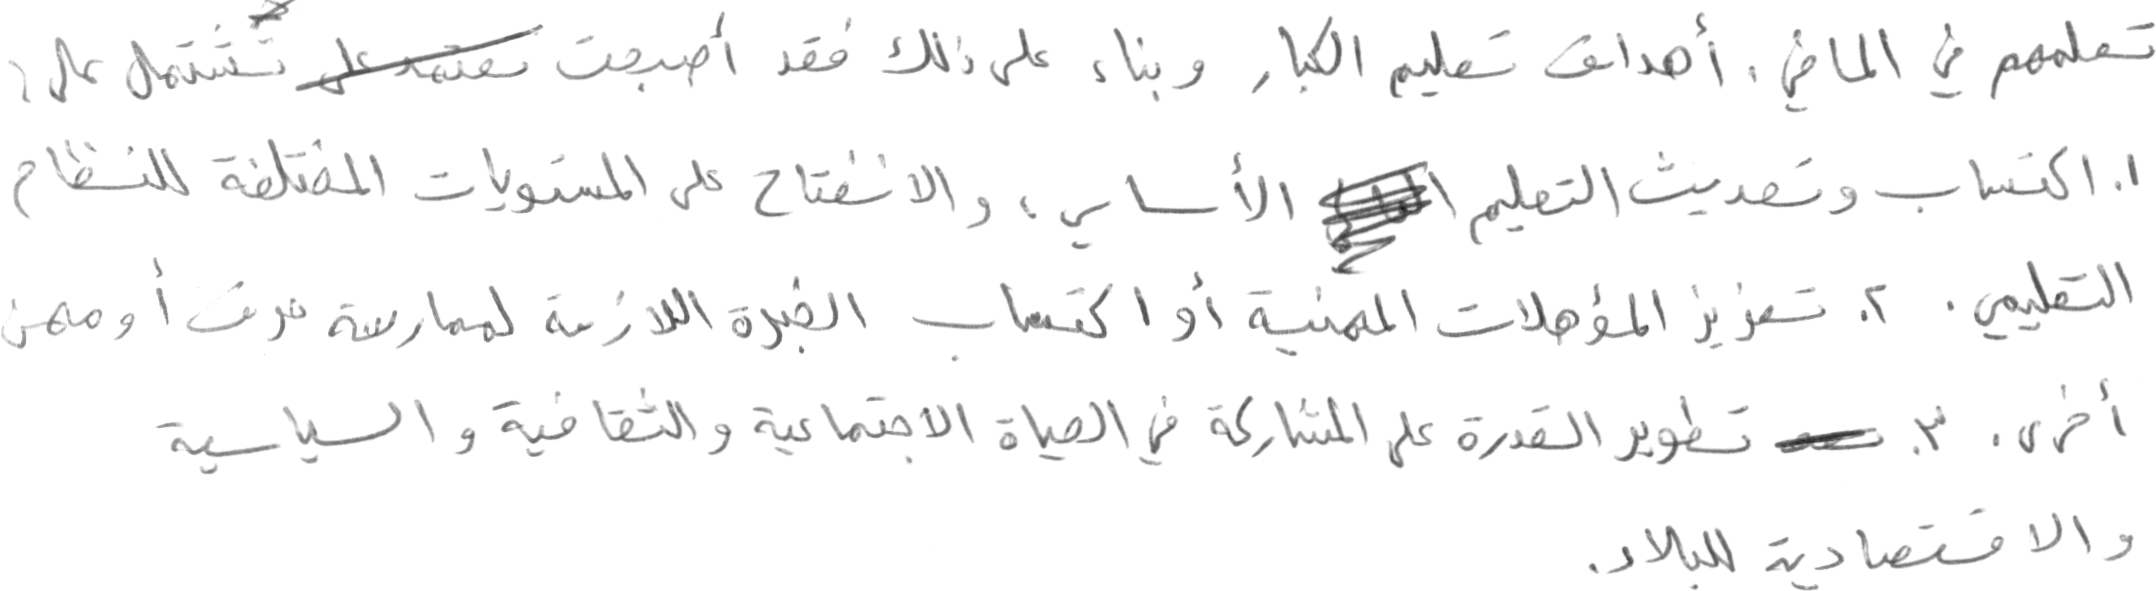 تعلمهم في الماضي. أهداف تعليم الكبار وبناء على ذلك فقد أصبحت تشتمل على:
١. اكتساب وتحديث التعليم الأساسي، والانفتاح على المستويات المختلفة للنظام
التعليمي. ٢. تعزيز المؤهلات المهنية أو اكتساب الخبرة اللازمة لممارسة حرف أو مهن
أخرى. ٣. تطوير القدرة على المشاركة في الحياة الاجتماعية والثقافية والسياسية
والاقتصادية للبلاد.